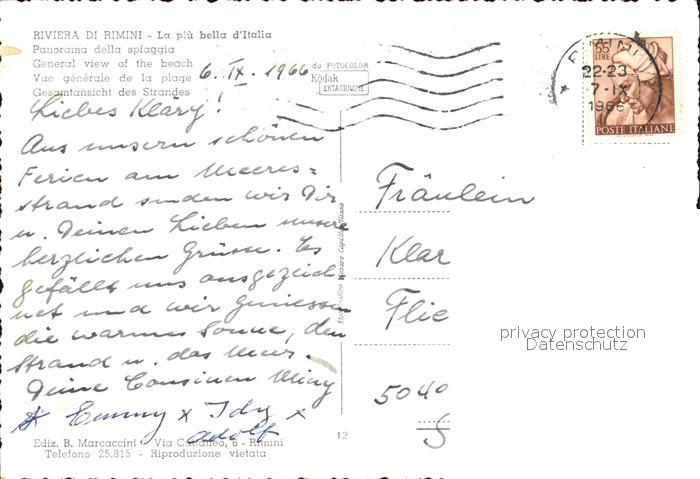 RIVIERA DI RIMINI - La più bella d'Italia
Panorama della spiaggia
General view of the beach
Vue générale de la plage
Gesamtansicht des Strandes
6. IX. 1966
da FOTOCOLOR
Kodak
EKTACHROME
55
LIRE
22-23
7-IX
1966
POSTE ITALIANE
Liebes Kläry!
Aus unsern schönen
Ferien am Meeres=
strand senden wir Dir
u. Deinen Lieben unsere
herzlichen Grüsse. Es
gefällt uns ausgezeich
net und wir geniessen
die warme Sonne, den
Strand u. das Meer.
Deine Cousinen Miny
x Emmy x Idy x
Adolf
Fräulein
Klar
Flie
5040
S
privacy protection
Datenschutz
12
Ediz. B. Marcaccini - Via Cattaneo, 6 - Rimini
Telefono 25.815 - Riproduzione vietata